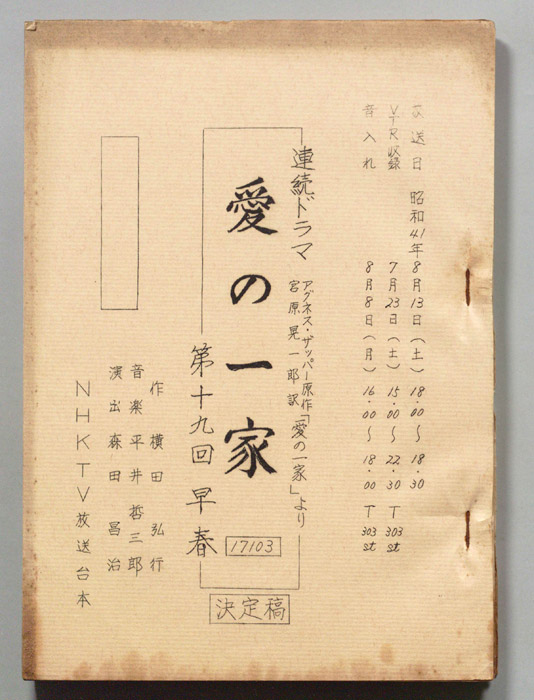 放送日 昭和41年8月13日(土)18.00〜18.30
VTR収録 7月23日(土)15.00〜22.30 T303st
音入れ 8月8日(月)16.00〜18.00 T303st
連続ドラマ
アグネス・ザッパー原作「愛の一家」より
宮原晃一郎訳
愛の一家
17103
第十九回 早春
決定稿
作 横田弘行
音楽 平井哲三郎
演出 森田昌治
NHKTV放送台本